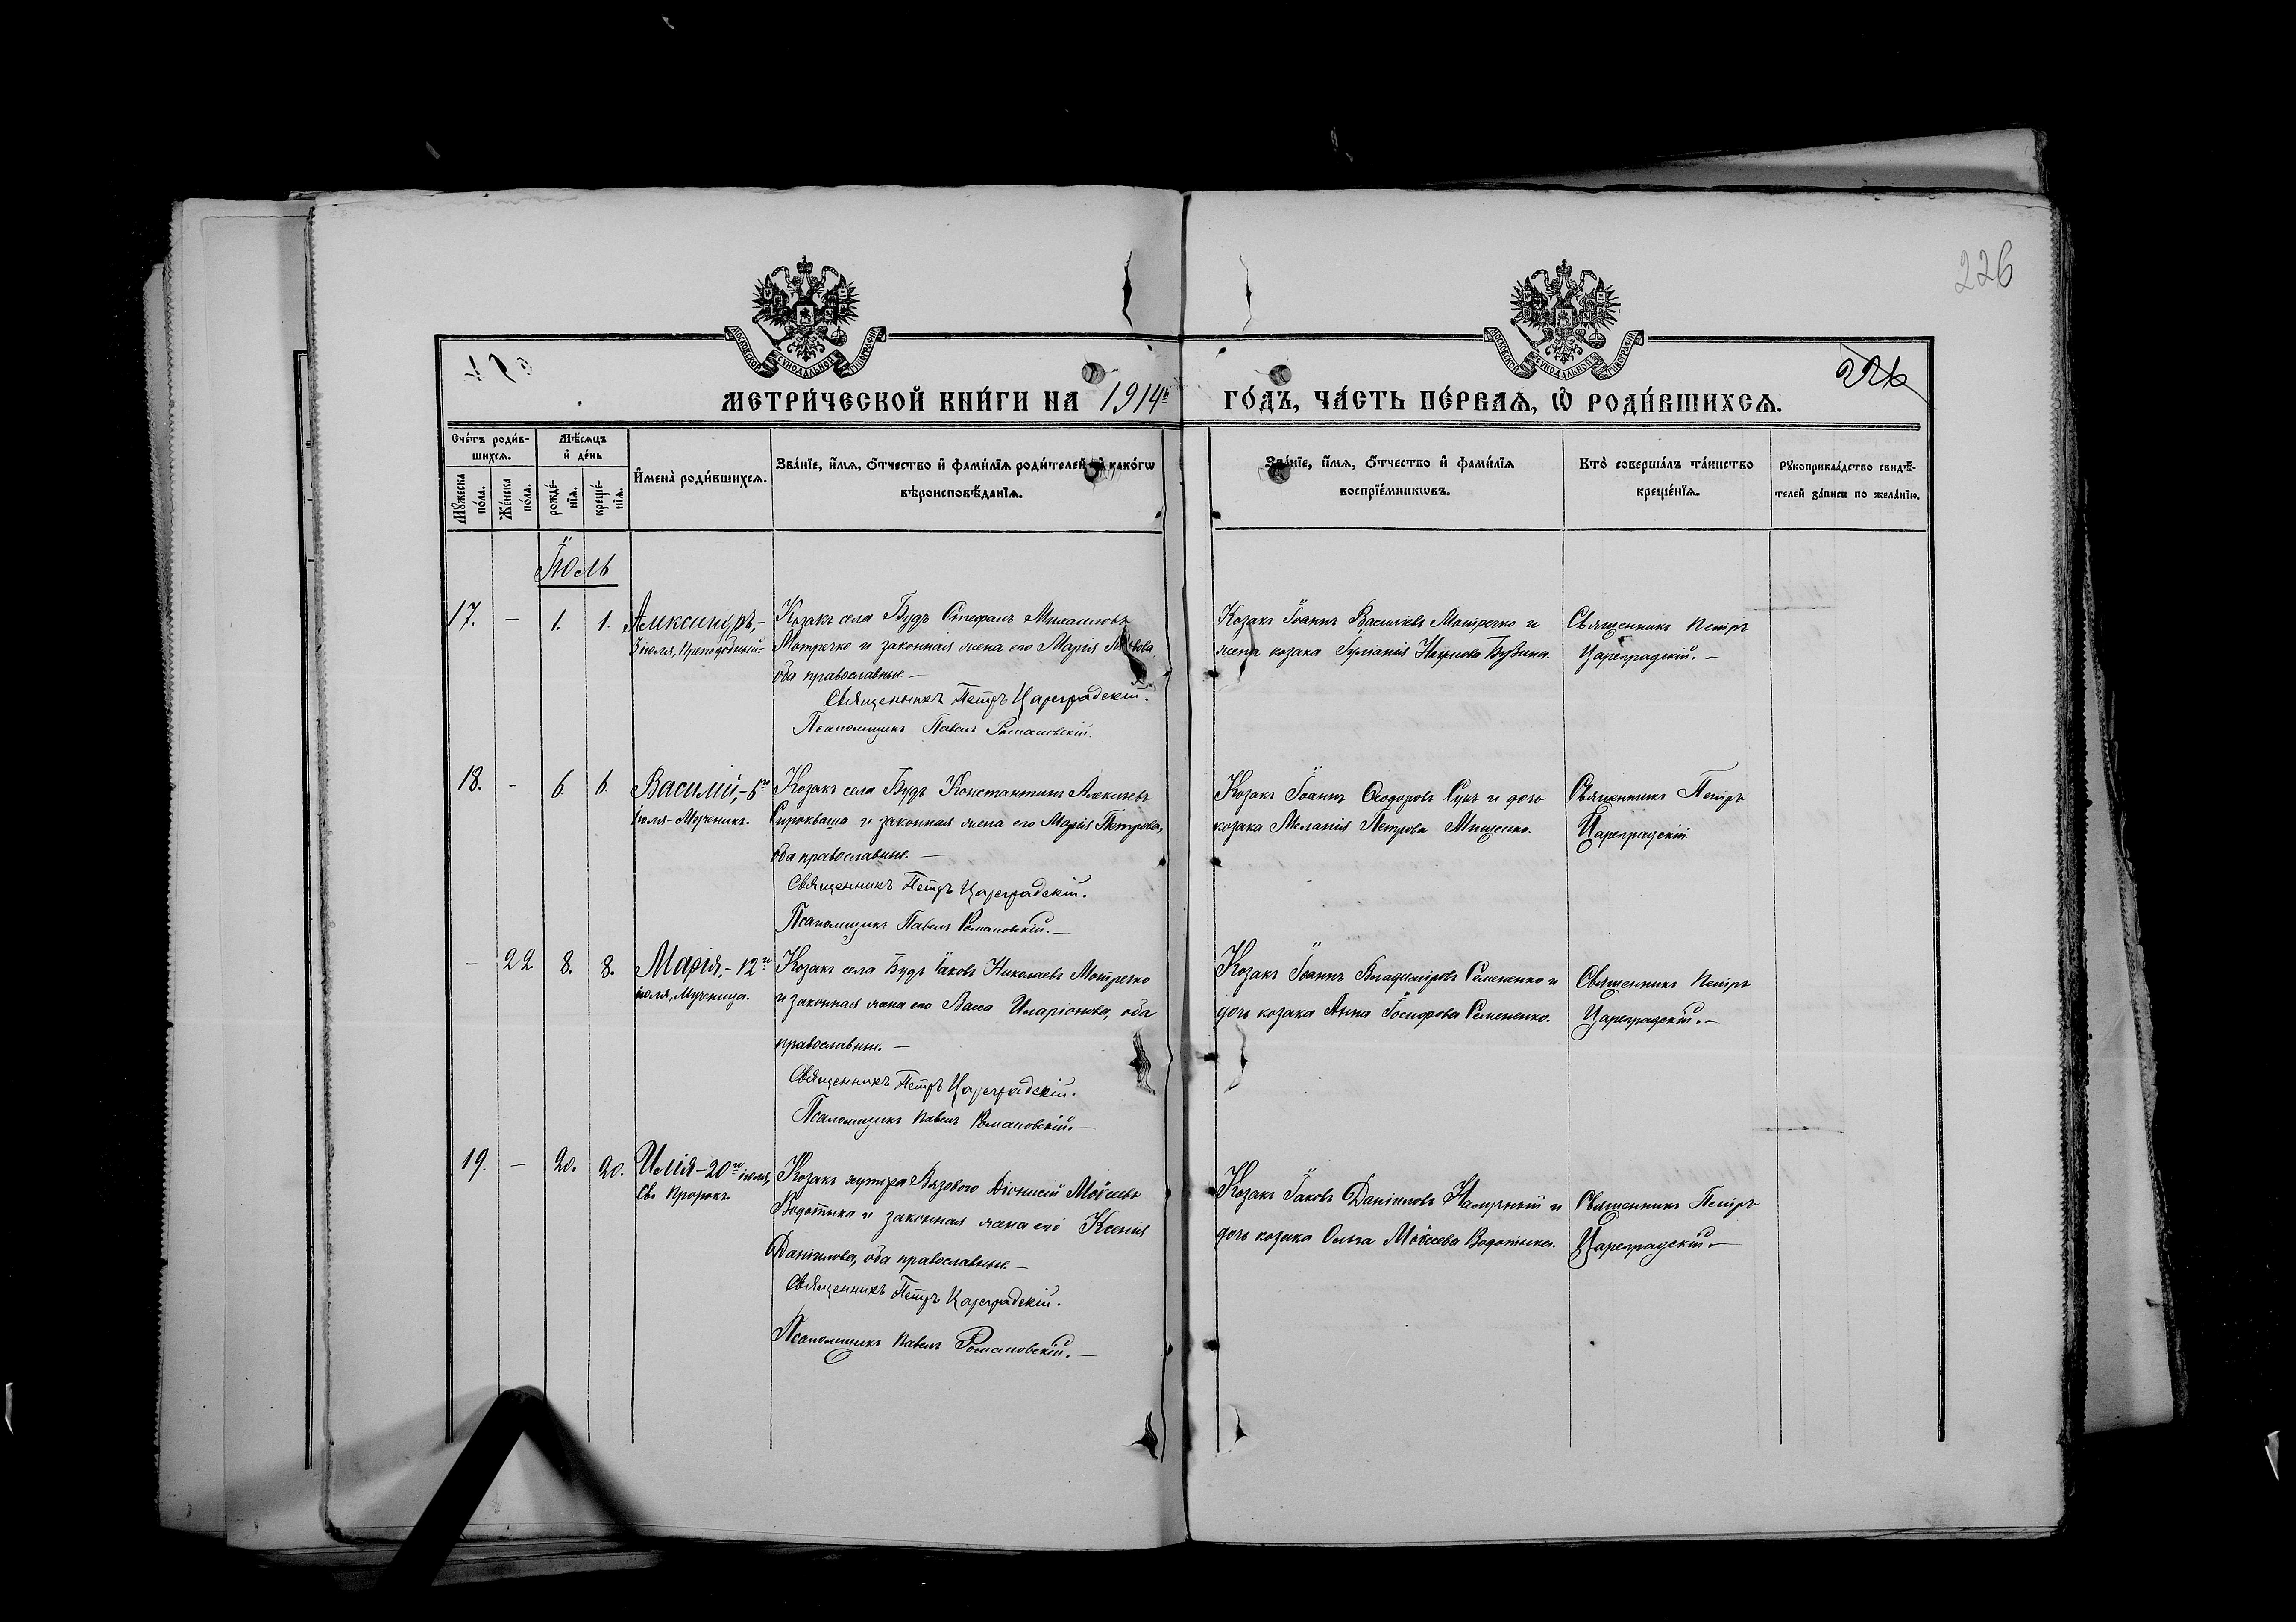 226
226
МОСКОВСКОЙ СУНОДАЛЬНОЙ ТИПОГРАФІИ
МОСКОВСКОЙ СУНОДАЛЬНОЙ ТИПОГРАФІИ
МЕТРИ́ЧЕСКОЙ КНИ́ГИ НА 1914й ГО́ДЪ, ЧА́СТЬ ПЕ́РВАѦ, Ѡ РОДИ́ВШИХСѦ.
Сче́тъ роди́в-
шихсѧ.
Мꙋ́жеска по́ла.
Же́нска по́ла.
Мѣ́сѧцъ
и҆ де́нь
рожде́-нїѧ.
креще́-нїѧ.
И҆мена̀ роди́вшихсѧ.
Зва́нїе, и҆́мѧ, ѻ҆́тчество и҆ фами́лїѧ роди́телей и҆ како́гѡ
вѣроисповѣ́данїѧ.
Зва́нїе, и҆́мѧ, ѻ҆́тчество и҆ фами́лїѧ
воспрїе́мникѡвъ.
Кто̀ соверша́лъ та́инство
креще́нїѧ.
Рꙋкоприкла́дство свидѣ́-
телей за́писи по жела́нїю.
Іюль
17. — 1. 1. Александръ,—
3 іюля, Преподобный.
Козакъ села Будъ Стефанъ Михаиловъ
Мотречко и законная жена его Марія
оба православные.—
Священникъ Петръ Цареградскій.
Псаломщикъ Павелъ Романовскій.
Козакъ Іоаннъ Васильевъ Мотречко и
жена козака Наумова
Священникъ Петръ
Цареградскій.—
18. - 6. 6. Василій,—6го
іюля—Мученикъ.
Козакъ села Будъ Константинъ Алексѣевъ
Сирокваша и законная жена его Марія Петрова,
оба православные.—
Священникъ Петръ Цареградскій.
Псаломщикъ Павелъ Романовскій.—
Козакъ Іоаннъ Ѳеодоровъ Сукъ и дочь
козака Меланія Петрова Мищенко.
Священникъ Петръ
Цареградскій
- 22 8. 8. Марія,—12го
іюля, Мученица.
Козакъ села Будъ Іаковъ Николаевъ Мотречко
и законная жена его Васса Иларіонова, оба
православные.—
Священникъ Петръ Цареградскій.
Псаломщикъ Павелъ Романовскій.—
Козакъ Іоаннъ Владиміровъ Семененко и
дочь козака Анна Іосифова Семененко.
Священникъ Петръ
Цареградскій.—
19. — 20. 20. Илія—20го іюля,
Св. Пророкъ
Козакъ хутора Вязового Діонисій Моѵсеевъ
Водотыка и законная жена его Ксенія
Даніилова, оба православные.—
Священникъ Петръ Цареградскій.
Псаломщикъ Павелъ Романовскій.—
Козакъ Іаковъ Даніиловъ и
дочь козака Ольга Моѵсеева Водотыка.
Священникъ Петръ
Цареградскій.—